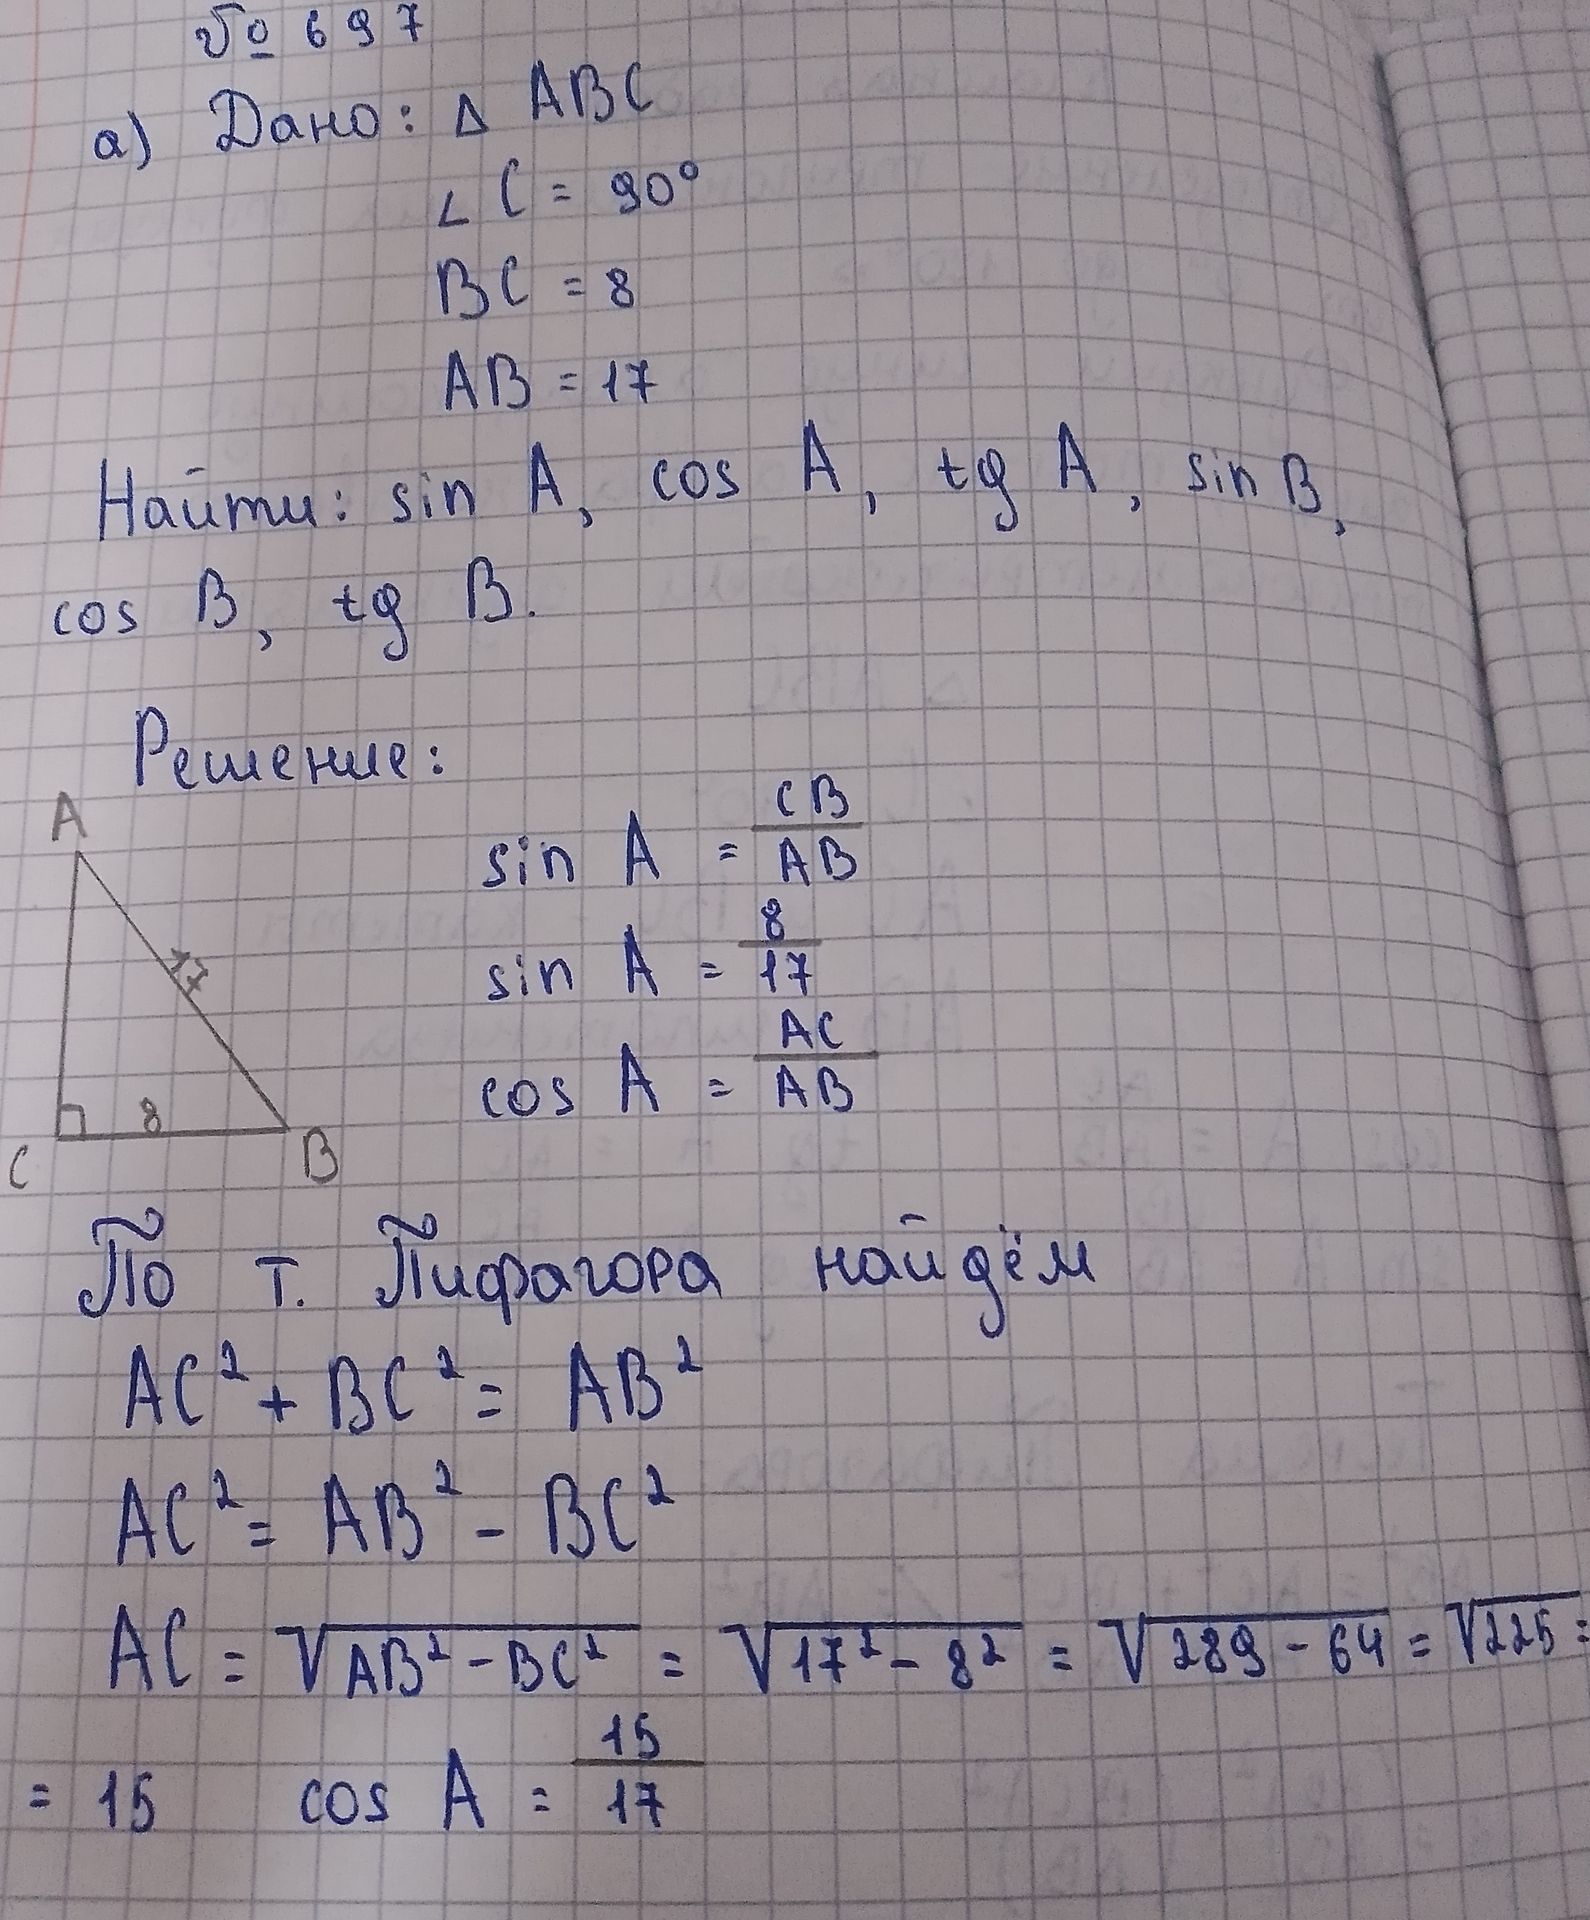 № 697
а) Дано: △ ABC
∠ C = 90°
BC = 8
AB = 17
Найти: sin A, cos A, tg A, sin B,
cos B, tg B.
Решение:
A
17
8
C
B
sin A = CB/AB
sin A = 8/17
cos A = AC/AB
По т. Пифагора найдём
AC² + BC² = AB²
AC² = AB² - BC²
AC = √(AB² - BC²) = √(17² - 8²) = √(289 - 64) = √225 =
= 15 cos A = 15/17